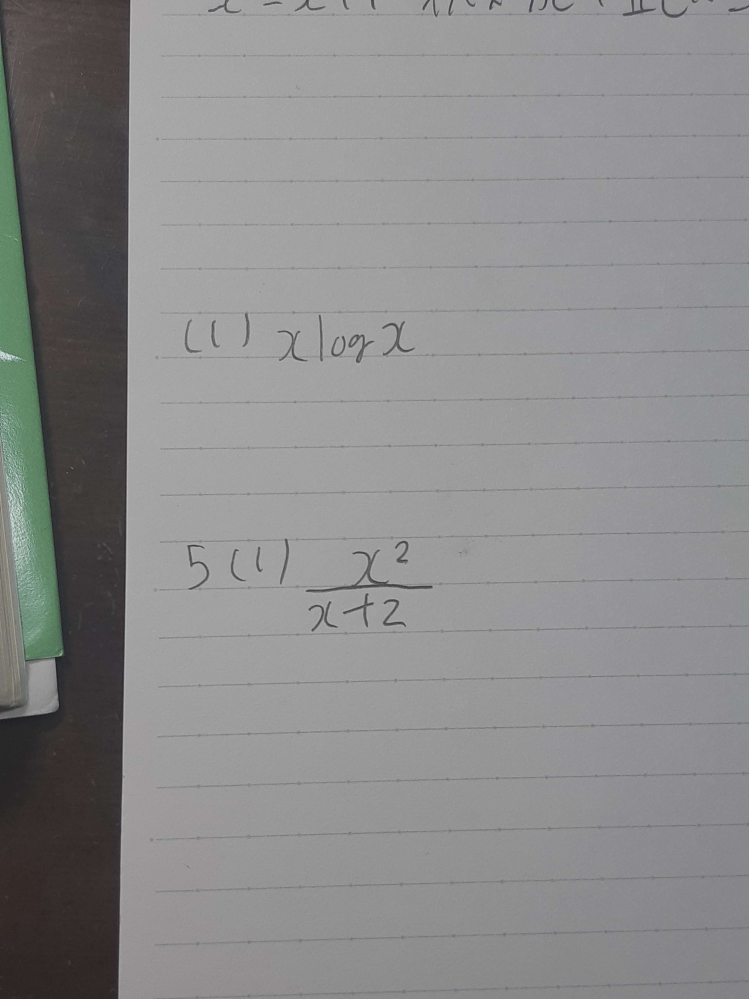 (1) x log x
5(1) x²/(x+2)